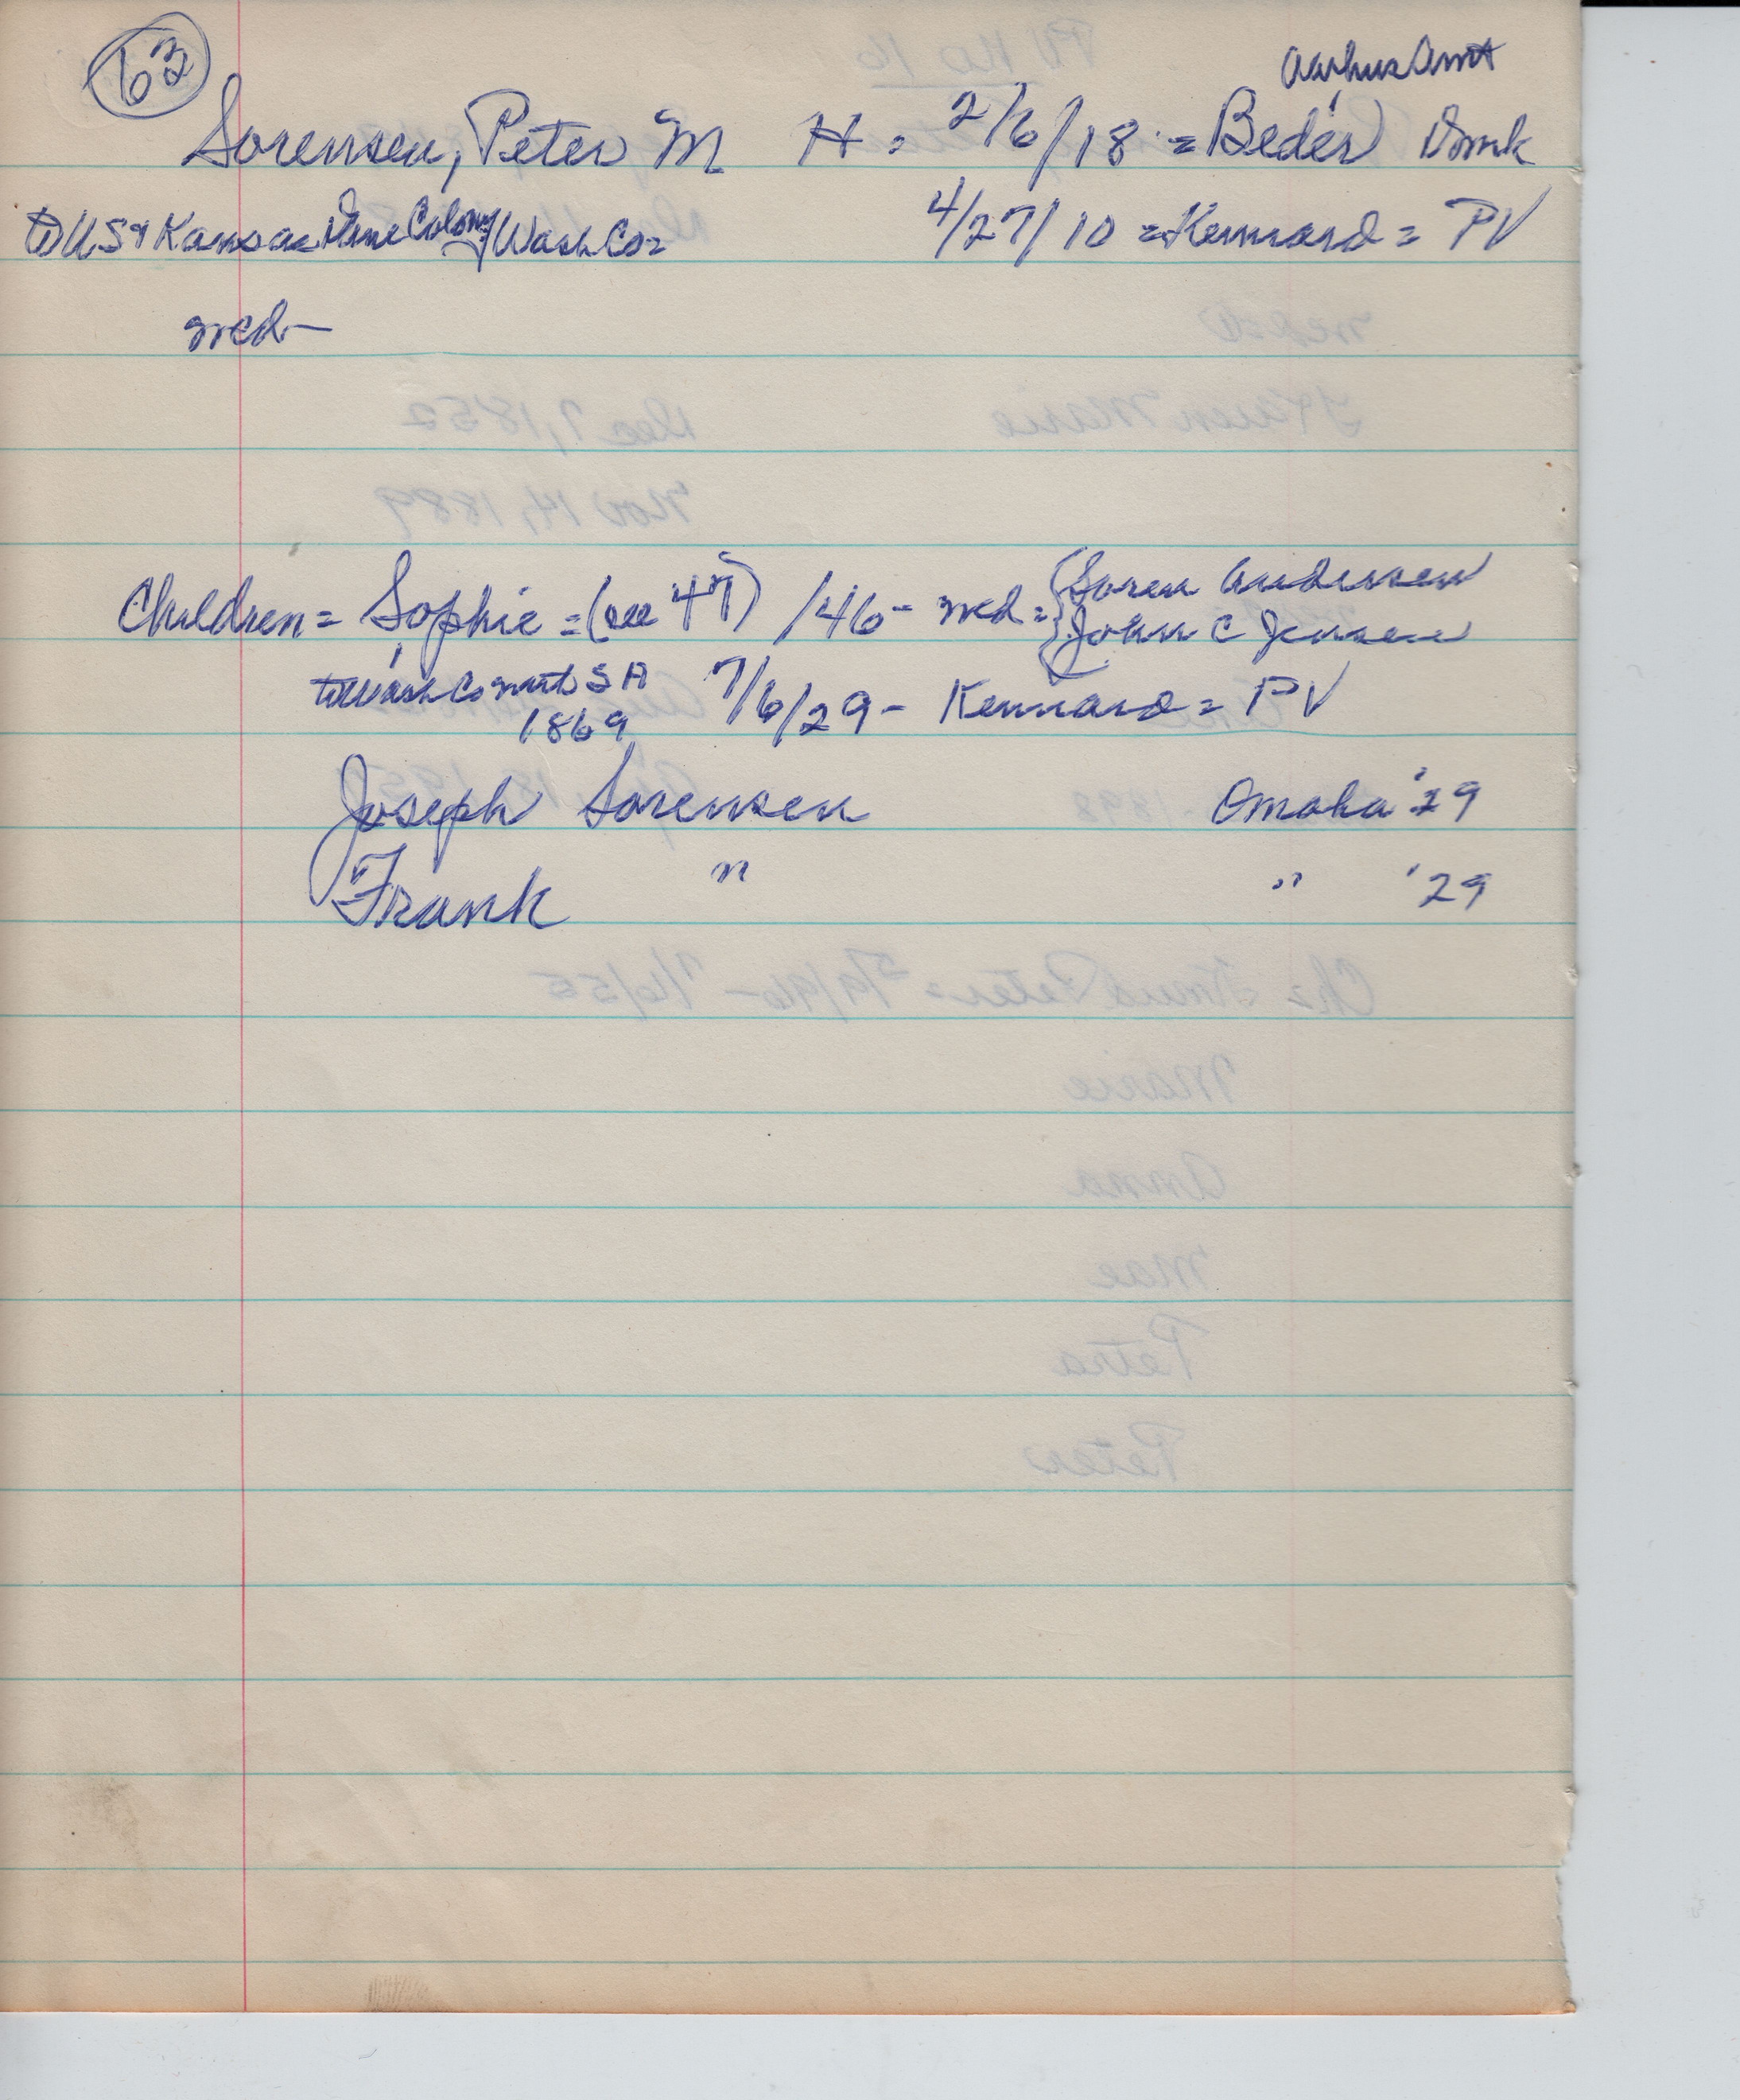 63
Aarhus Amt
Sorensen, Peter M H = 2/6/18 = Beder Dmk
to US & Kansas Dane Colony Wash Co = 4/27/10 = Kennard = PV
med -
Children = Sophie = (see 47) /46 - med = {Soren Andersen
{John C Jensen
to Wash Co SA 7/6/29 - Kennard = PV
1869
Joseph Sorensen Omaha '29
Frank " " '29